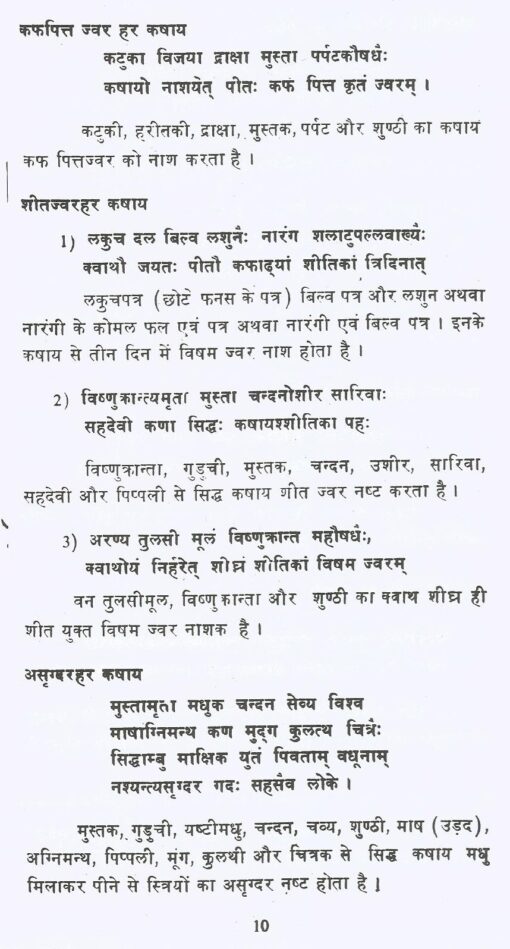 कफपित्त ज्वर हर कषाय
कटुका विजया द्राक्षा मुस्ता पर्पटकौषधैः
कषायो नाशयेत् पीतः कफ पित्त कृतं ज्वरम् ।
कटुकी, हरीतकी, द्राक्षा, मुस्तक, पर्पट और शुण्ठी का कषाय
कफ पित्तज्वर को नाश करता है ।
शीतज्वरहर कषाय
1) लकुच दल बिल्व लशुनैः नारंग शलाटुपल्लवाख्यैः
क्वाथौ जयतः पीतौ कफाढ्यां शीतिकां त्रिदिनात्
लकुचपत्र (छोटे फनस के पत्र) बिल्व पत्र और लशुन अथवा
नारंगी के कोमल फल एवं पत्र अथवा नारंगी एवं बिल्व पत्र । इनके
कषाय से तीन दिन में विषम ज्वर नाश होता है ।
2) विष्णुक्रान्त्यमृता मुस्ता चन्दनोशीर सारिवाः
सहदेवी कणा सिद्धः कषायश्शीतिका पहः
विष्णुक्रान्ता, गुडूची, मुस्तक, चन्दन, उशीर, सारिवा,
सहदेवी और पिप्पली से सिद्ध कषाय शीत ज्वर नष्ट करता है ।
3) अरण्य तुलसी मूलं विष्णुक्रान्त महौषधैः,
क्वाथोयं निर्हरेत् शीघ्रं शीतिकां विषम ज्वरम्
वन तुलसीमूल, विष्णुकान्ता और शुण्ठी का क्वाथ शीघ्र ही
शीत युक्त विषम ज्वर नाशक है ।
असृग्दरहर कषाय
मुस्तामृता मधुक चन्दन सेव्य विश्व
माषाग्निमन्थ कण मुद्ग कुलत्थ चित्रैः
सिद्धाम्बु माक्षिक युतं पिवताम् वधूनाम्
नश्यन्त्यसृग्दर गदः सहसैव लोके ।
मुस्तक, गुडुची, यष्टीमधु, चन्दन, चव्य, शुण्ठी, माष (उड़द),
अग्निमन्थ, पिप्पली, मूंग, कुलथी और चित्रक से सिद्ध कषाय मधु
मिलाकर पीने से स्त्रियों का असृग्दर नष्ट होता है ।
10